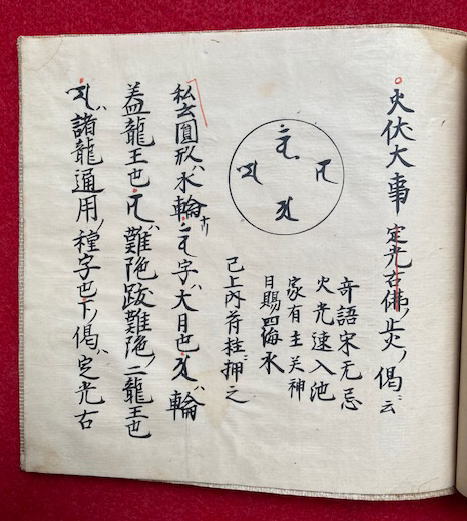 火伏大事 定光古佛ノ止火ノ偈ニ云
奇語宋无忌
火光速入池
家有壬癸神
日賜四海水
已上内符柱押之
私云圓形ハ水輪ナリ 字ハ大日也 ハ輪
蓋龍王也 ハ難陀跋難陀ノ二龍王也
ハ諸龍通用ノ種字也下ノ偈ハ定光古